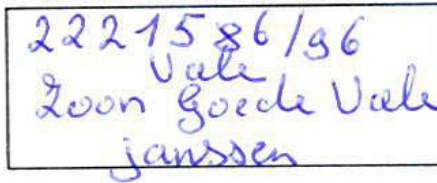 2221586/96
Vale
Zoon Goede Vale
janssen